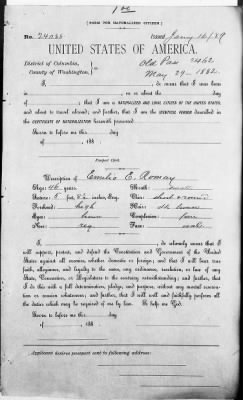 [FORM FOR NATURALIZED CITIZEN]
No. 74033 ISSUED Jany 16/89
UNITED STATES OF AMERICA.
District of Columbia,
County of Washington,
Old Pass 2462
May 29 - 1882.
I, do swear that I was born
in , on or about the day
of , that I am a NATURALIZED AND LOYAL CITIZEN OF THE UNITED STATES,
and about to travel abroad; and further, that I am the IDENTICAL PERSON described in the
CERTIFICATE OF NATURALIZATION herewith presented.
Sworn to before me this day
of , 188
Description of Emilio E. Romay
Age: 46 years. Mouth: small
Stature: 5 feet, inches, Eng. Chin: round
Forehead: high Hair: brown
Eyes: brown Complexion: fair
Nose: reg Face:
I, , do solemnly swear that I
will support, protect, and defend the Constitution and Government of the United
States against all enemies, whether domestic or foreign; and that I will bear true
faith, allegiance, and loyalty to the same, any ordinance, resolution, or law of any
State, Convention, or Legislature to the contrary notwithstanding; and further, that
I do this with a full determination, pledge, and purpose, without any mental reservation
or evasion whatsoever; and further, that I will well and faithfully perform all
the duties which may be required of me by law. So help me God.
Sworn to before me this day
of , 188
Applicant desires passport sent to following address: